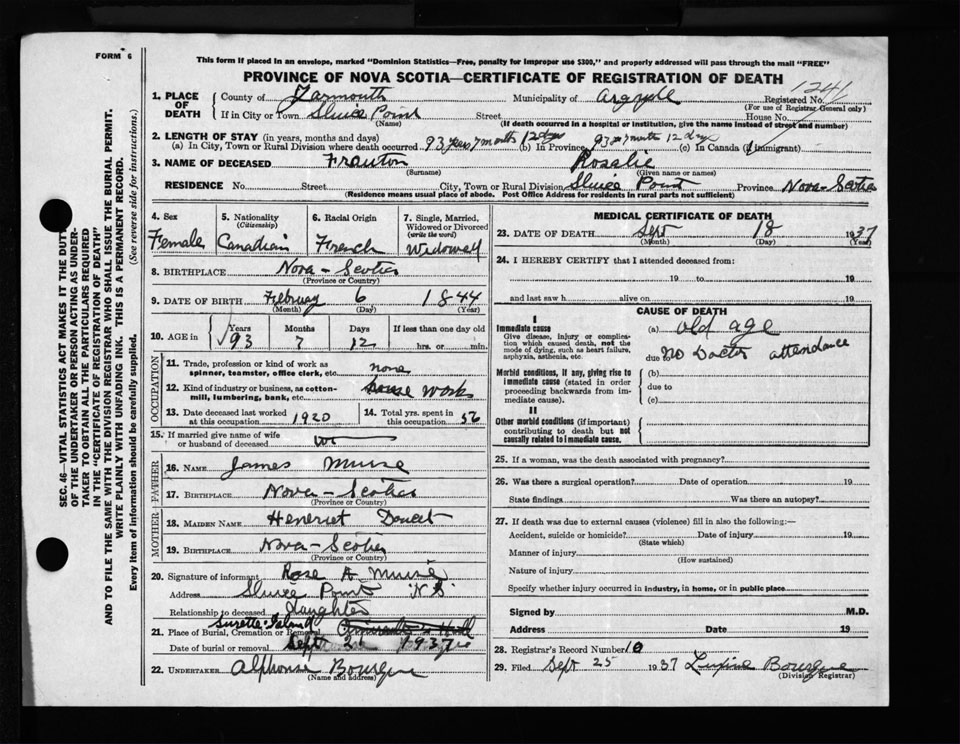 FORM 6
This form if placed in an envelope, marked "Dominion Statistics—Free, penalty for improper use $300," and properly addressed will pass through the mail "FREE"
PROVINCE OF NOVA SCOTIA—CERTIFICATE OF REGISTRATION OF DEATH
1. PLACE OF DEATH
County of Yarmouth Municipality of Argyle Registered No. 1241
(For use of Registrar General only)
If in City or Town Sluice Point Street House No.
(Name) (If death occurred in a hospital or institution, give the name instead of street and number)
2. LENGTH OF STAY (in years, months and days)
(a) In City, Town or Rural Division where death occurred 93 years 7 months 12 days (b) In Province 93 7 months 12 days (c) In Canada (if immigrant)
3. NAME OF DECEASED Rosalie
(Surname) (Given name or names)
RESIDENCE No. Street City, Town or Rural Division Sluice Point Province Nova-Scotia
(Residence means usual place of abode. Post Office Address for residents in rural parts not sufficient)
4. Sex Female
5. Nationality (Citizenship) Canadian
6. Racial Origin French
7. Single, Married, Widowed or Divorced (write the word) Widowed
8. BIRTHPLACE Nova-Scotia
(Province or Country)
9. DATE OF BIRTH February 6 1844
(Month) (Day) (Year)
10. AGE in Years Months Days If less than one day old
93 7 12 hrs. or min.
OCCUPATION
11. Trade, profession or kind of work as spinner, teamster, office clerk, etc. none
12. Kind of industry or business, as cotton-mill, lumbering, bank, etc. house work
13. Date deceased last worked at this occupation 1920
14. Total yrs. spent in this occupation 56
15. If married give name of wife or husband of deceased
FATHER
16. NAME James Muise
17. BIRTHPLACE Nova-Scotia
(Province or Country)
MOTHER
18. MAIDEN NAME Henriet Doucet
19. BIRTHPLACE Nova-Scotia
(Province or Country)
20. Signature of informant Rose A Muise
Address Sluice Point N.S
Relationship to deceased daughter
Surette Island
21. Place of Burial, Cremation or Removal
Date of burial or removal Sept 21 1937
22. UNDERTAKER Alphonse Bourque
(Name and address)
MEDICAL CERTIFICATE OF DEATH
23. DATE OF DEATH Sept 18 1937
(Month) (Day) (Year)
24. I HEREBY CERTIFY that I attended deceased from:
19 to 19
and last saw h alive on 19
CAUSE OF DEATH
I
Immediate cause
Give disease, injury or complication which caused death, not the mode of dying, such as heart failure, asphyxia, asthenia, etc.
(a) old age
due to No Doctor attendance
Morbid conditions, if any, giving rise to immediate cause (stated in order proceeding backwards from immediate cause).
(b) due to
(c)
II
Other morbid conditions (if important) contributing to death but not causally related to immediate cause.
25. If a woman, was the death associated with pregnancy?
26. Was there a surgical operation? Date of operation 19
State findings Was there an autopsy?
27. If death was due to external causes (violence) fill in also the following:—
Accident, suicide or homicide? Date of injury 19
(State which)
Manner of injury
(How sustained)
Nature of injury
Specify whether injury occurred in industry, in home, or in public place
Signed by M.D.
Address Date 19
28. Registrar's Record Number 10
29. Filed Sept 25 1937 Bourque
(Division Registrar)
SEC. 46—VITAL STATISTICS ACT MAKES IT THE DUTY
OF THE UNDERTAKER OR PERSON ACTING AS UNDER-
TAKER TO OBTAIN ALL THE PARTICULARS REQUIRED
IN THE "CERTIFICATE OF REGISTRATION OF DEATH"
AND TO FILE THE SAME WITH THE DIVISION REGISTRAR WHO SHALL ISSUE THE BURIAL PERMIT.
WRITE PLAINLY WITH UNFADING INK. THIS IS A PERMANENT RECORD.
Every item of information should be carefully supplied. (See reverse side for instructions.)